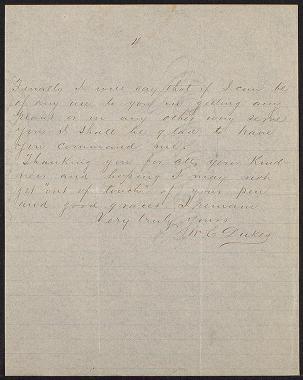 4
Finally I will say that if I can be
of any use to you in getting any
plants or in any other way serve
you I shall be glad to have
you command me.
Thanking you for all your kind-
ness and hoping I may not
get "out of touch" of your pen
and good graces I remain
Very truly yours
W. C. Dukes